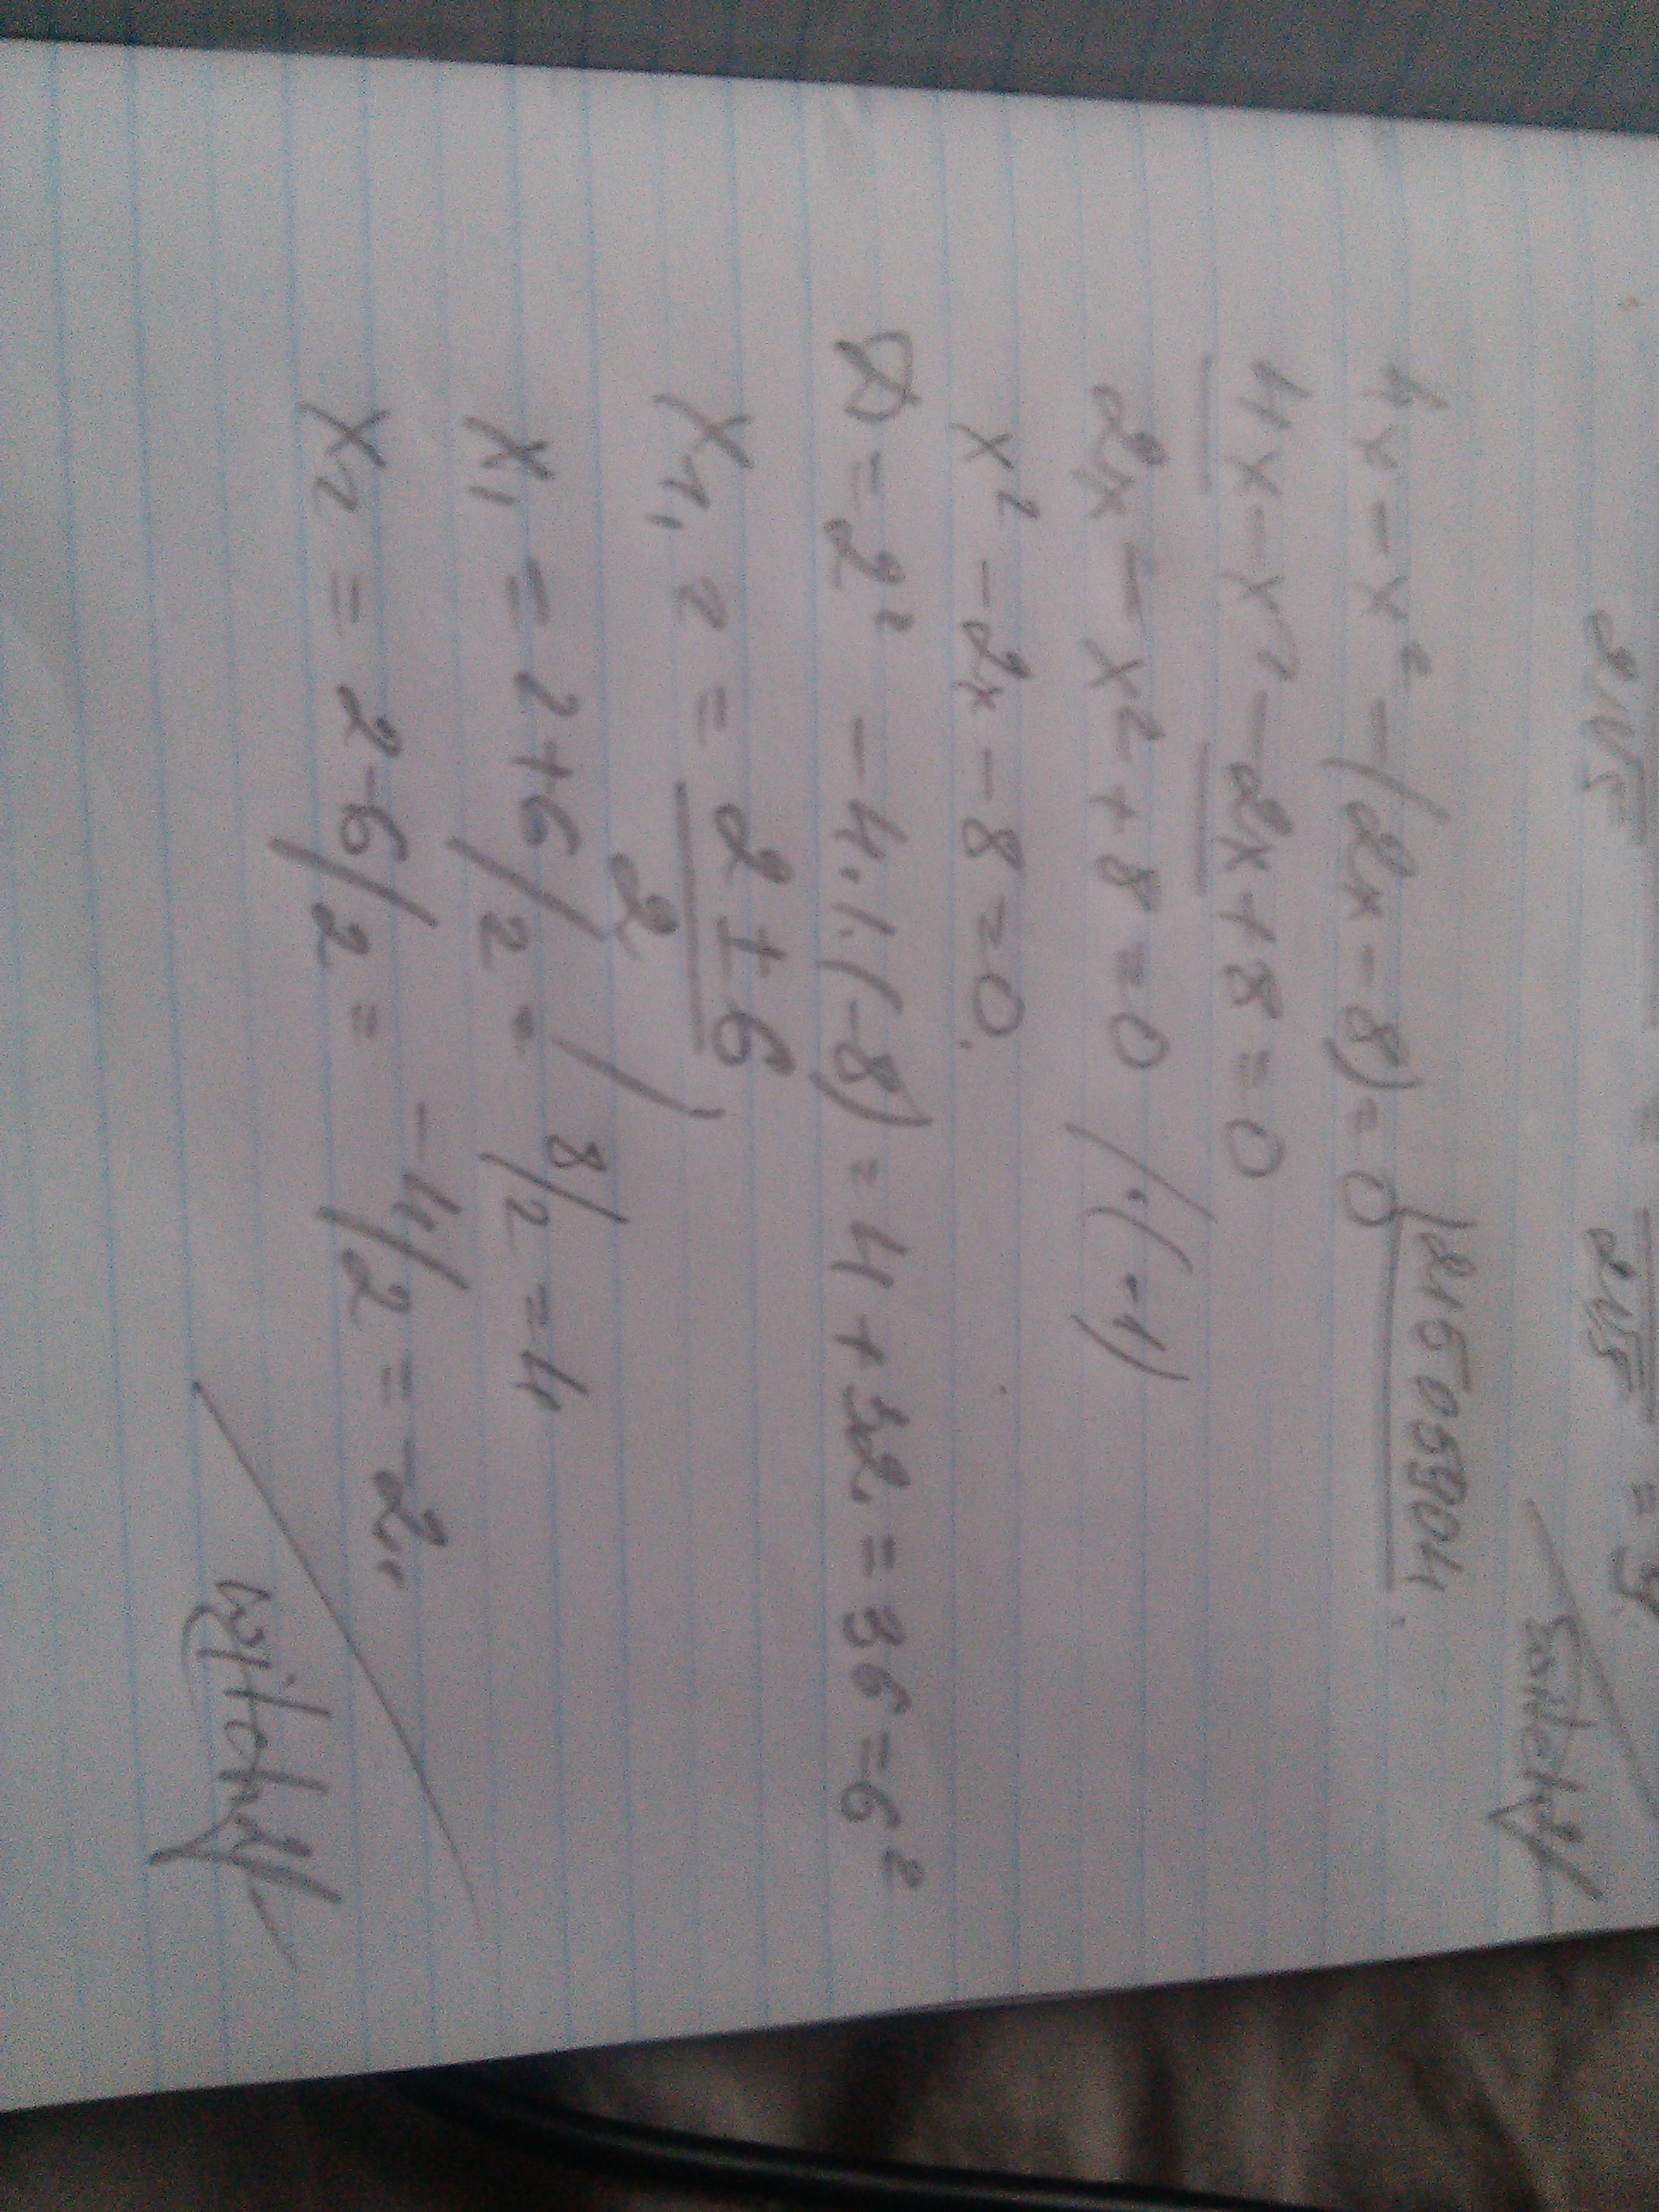 = 9.
4x - x² - (2x - 8) = 0 |21505904
4x - x² - 2x + 8 = 0
2x - x² + 8 = 0 /·(-1)
x² - 2x - 8 = 0.
D = 2² - 4·1·(-8) = 4 + 32 = 36 = 6²
x1,2 = 2 ± 6 / 2
x1 = 2+6/2 = 8/2 = 4
x2 = 2-6/2 = -4/2 = -2